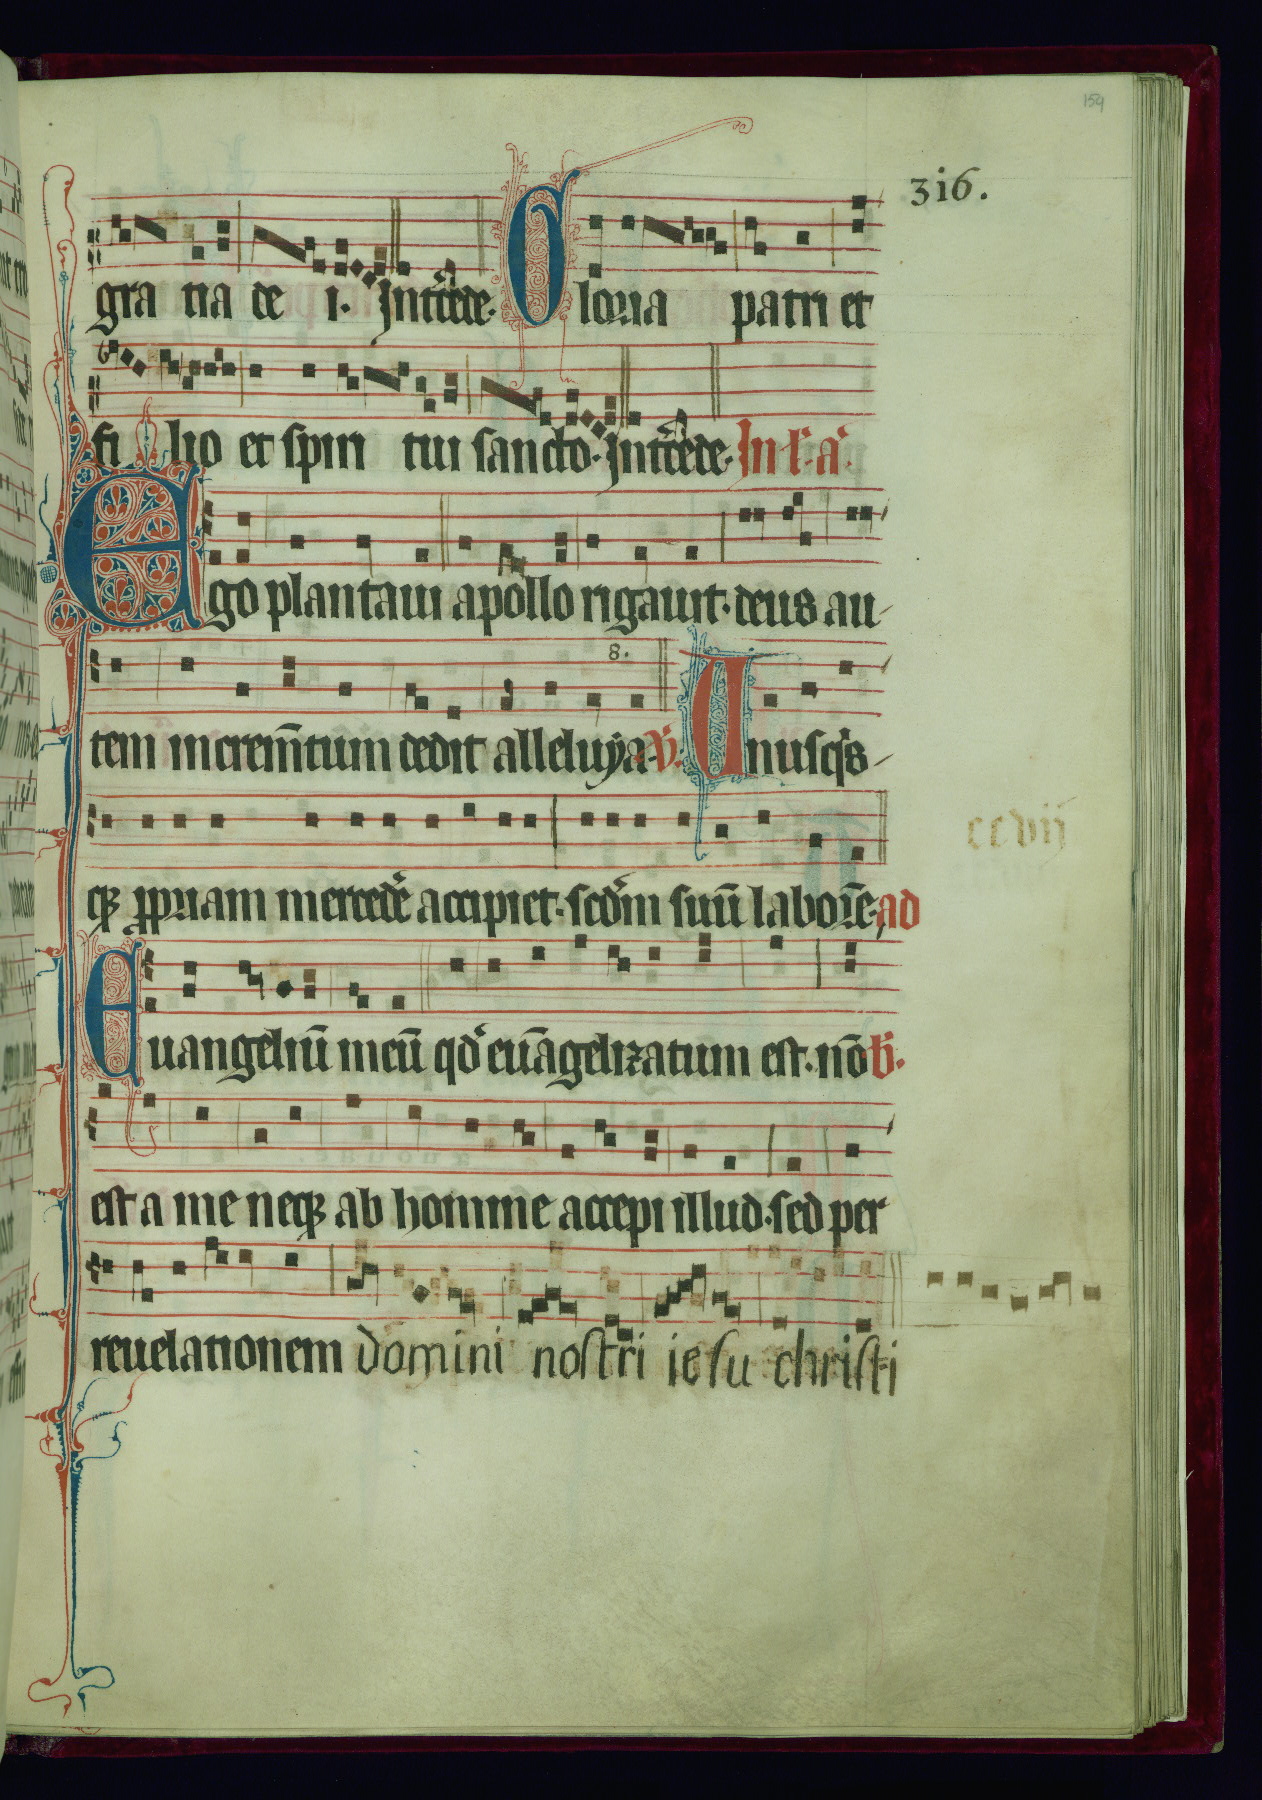 159
316.
gra tia de i. Intcede. Gloria patri et
fi lio et spiri tui sancto. Intcede. In l' a'
Ego plantaui apollo rigauit. deus au-
8.
tem increm̄tum dedit alleluya. V. Unusq's-
qꝫ ꝓpriam mercedē accipiet. scd'm suū laborē. ad
ccvij
Euangeliū meū qd' euāgelizatum est. nō b'.
est a me neqꝫ ab homine accepi illud. sed per
reuelationem domini nostri iesu christi